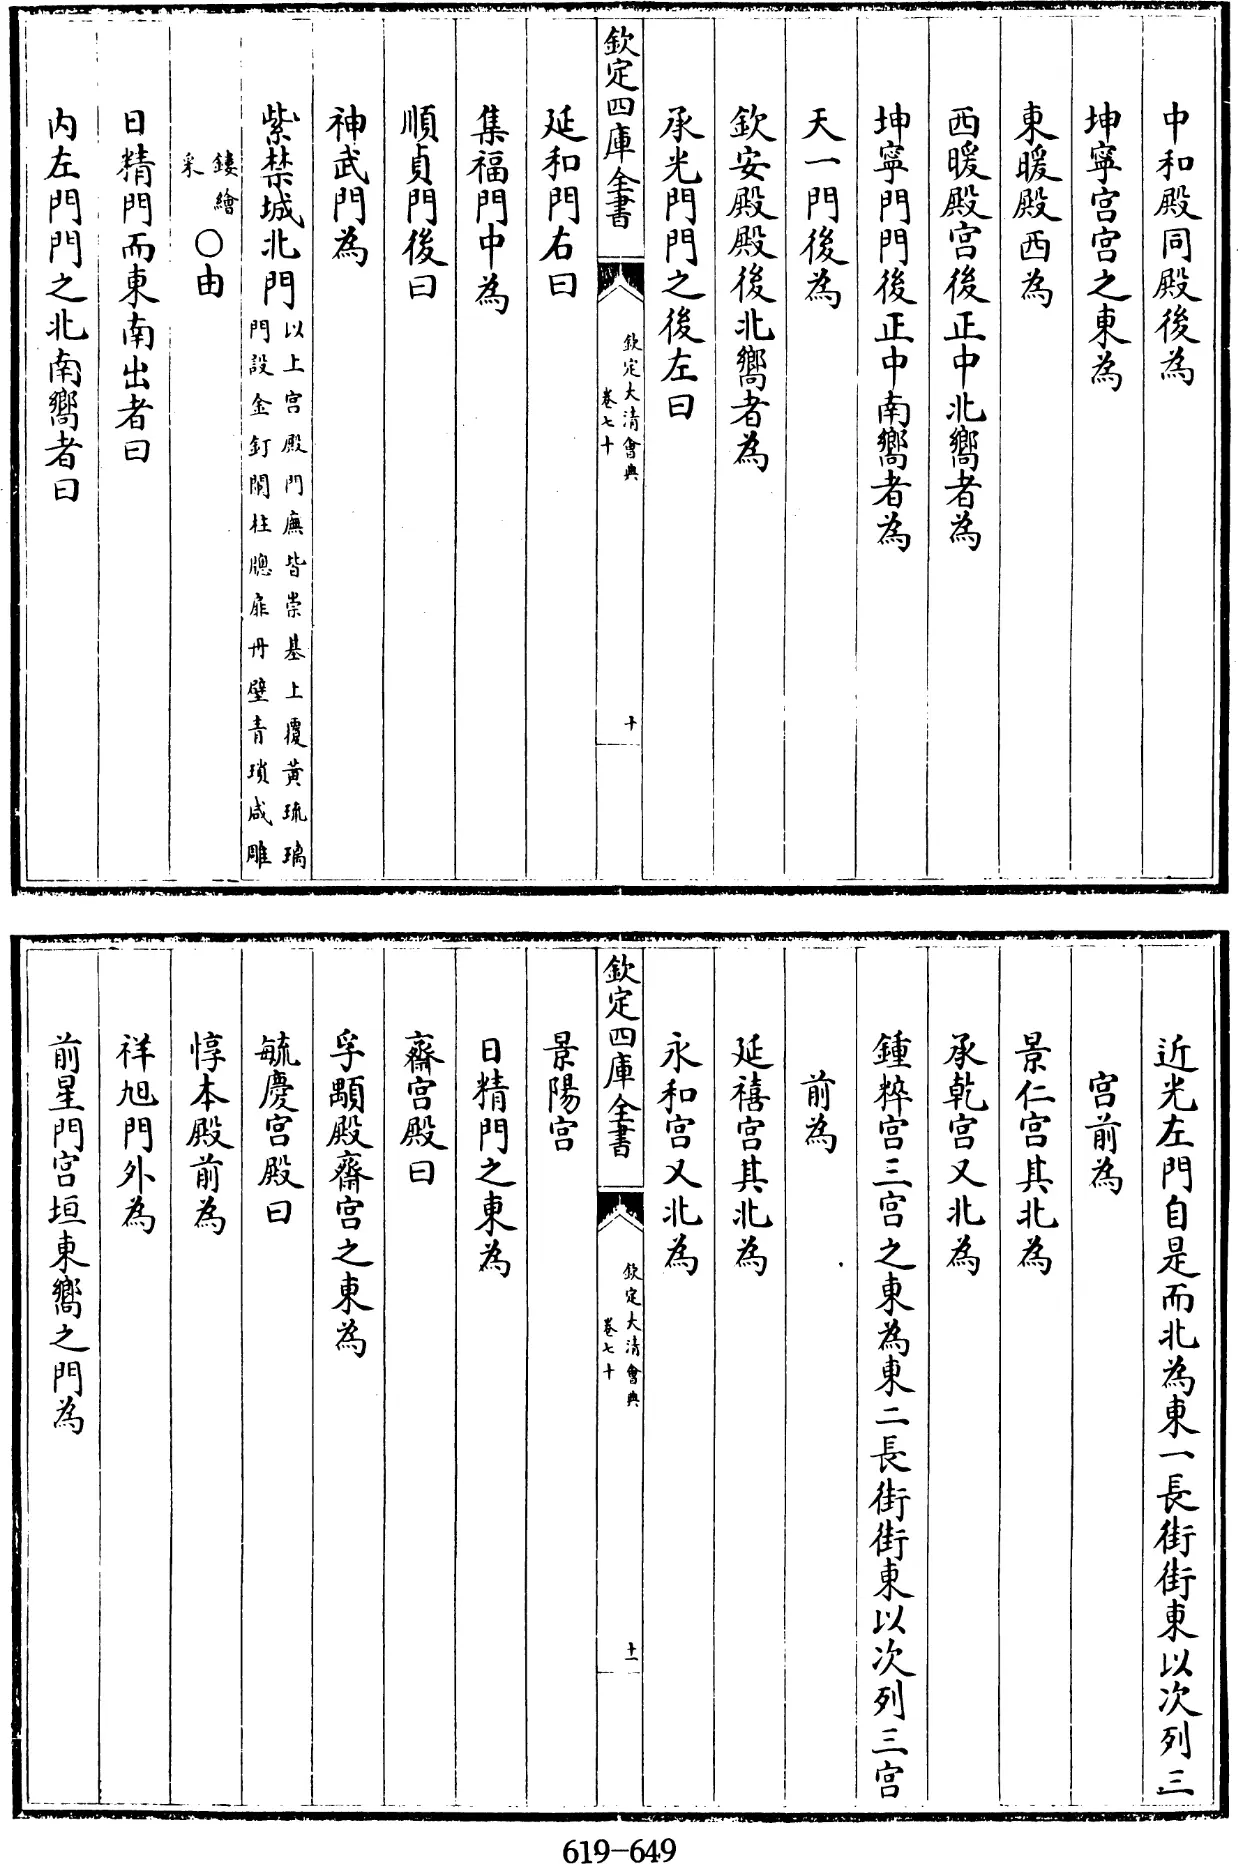 中和殿同殿後為
坤寧宫宫之東為
東暖殿西為
西暖殿宫後正中北嚮者為
坤寧門門後正中南嚮者為
天一門後為
欽安殿殿後北嚮者為
承光門門之後左曰
欽定四庫全書
欽定大清會典
卷七十
十
延和門右曰
集福門中為
順貞門後曰
神武門為
紫禁城北門
以上宫殿門廡皆崇基上覆黃琉璃
門設金釘闌柱牕扉丹壁青瑣咸雕
鏤繪
采
○由
日精門而東南出者曰
内左門門之北南嚮者曰
近光左門自是而北為東一長街街東以次列三
宫前為
景仁宫其北為
承乾宫又北為
鍾粹宫三宫之東為東二長街街東以次列三宫
前為
延禧宫其北為
永和宫又北為
欽定四庫全書
欽定大清會典
卷七十
十一
景陽宫
日精門之東為
齋宫殿曰
孚顒殿齋宫之東為
毓慶宫殿曰
惇本殿前為
祥旭門外為
前星門宫垣東嚮之門為
619-649